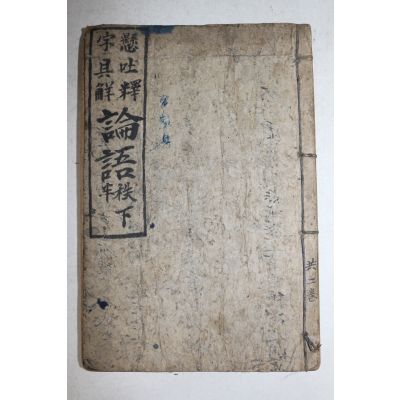 懸吐釋
字具解
論語
秩下
共二卷